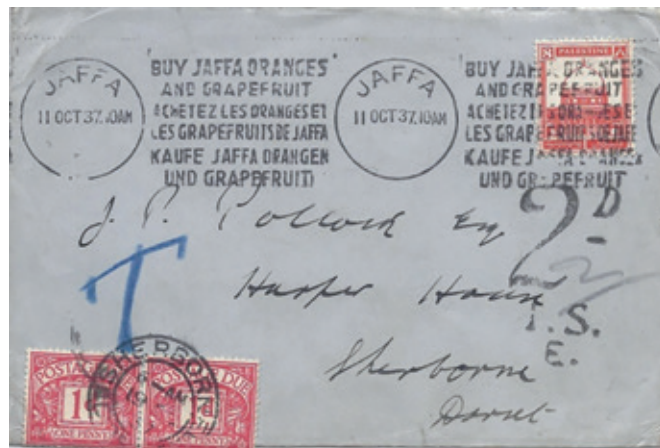 JAFFA
11 OCT 37.10AM
BUY JAFFA ORANGES
AND GRAPEFRUIT
ACHETEZ LES ORANGES ET
LES GRAPEFRUITS DE JAFFA
KAUFE JAFFA ORANGEN
UND GRAPEFRUIT
JAFFA
11 OCT 37.10AM
BUY JAFFA ORANGES
AND GRAPEFRUIT
ACHETEZ LES ORANGES ET
LES GRAPEFRUITS DE JAFFA
KAUFE JAFFA ORANGEN
UND GRAPEFRUIT
8 PALESTINE
J. P. Pollock Esq
Harper House
Sherborne
Dorset
2D
I.S.
E.
T
POSTAGE DUE
1D
ONE PENNY
POSTAGE DUE
1D
ONE PENNY
SHERBORNE
AM